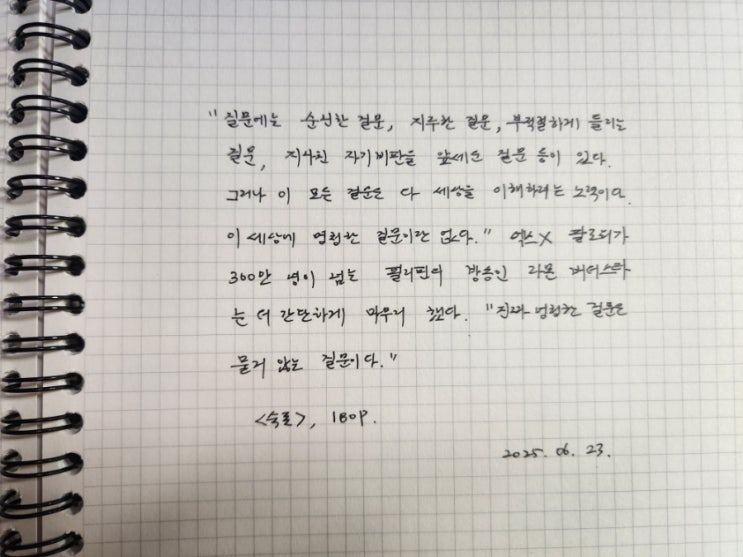 "질문에는 순진한 질문, 지루한 질문, 부적절하게 들리는
질문, 지나친 자기비판을 앞세운 질문 등이 있다.
그러나 이 모든 질문은 다 세상을 이해하려는 노력이다.
이 세상에 멍청한 질문이란 없다." 엑스X 팔로워가
360만 명이 넘는 필리핀의 방송인 라몬 바우티스타
는 더 간단하게 마무리 했다. "진짜 멍청한 질문은
묻지 않는 질문이다."
<숙론>, 180p.
2025. 06. 23.